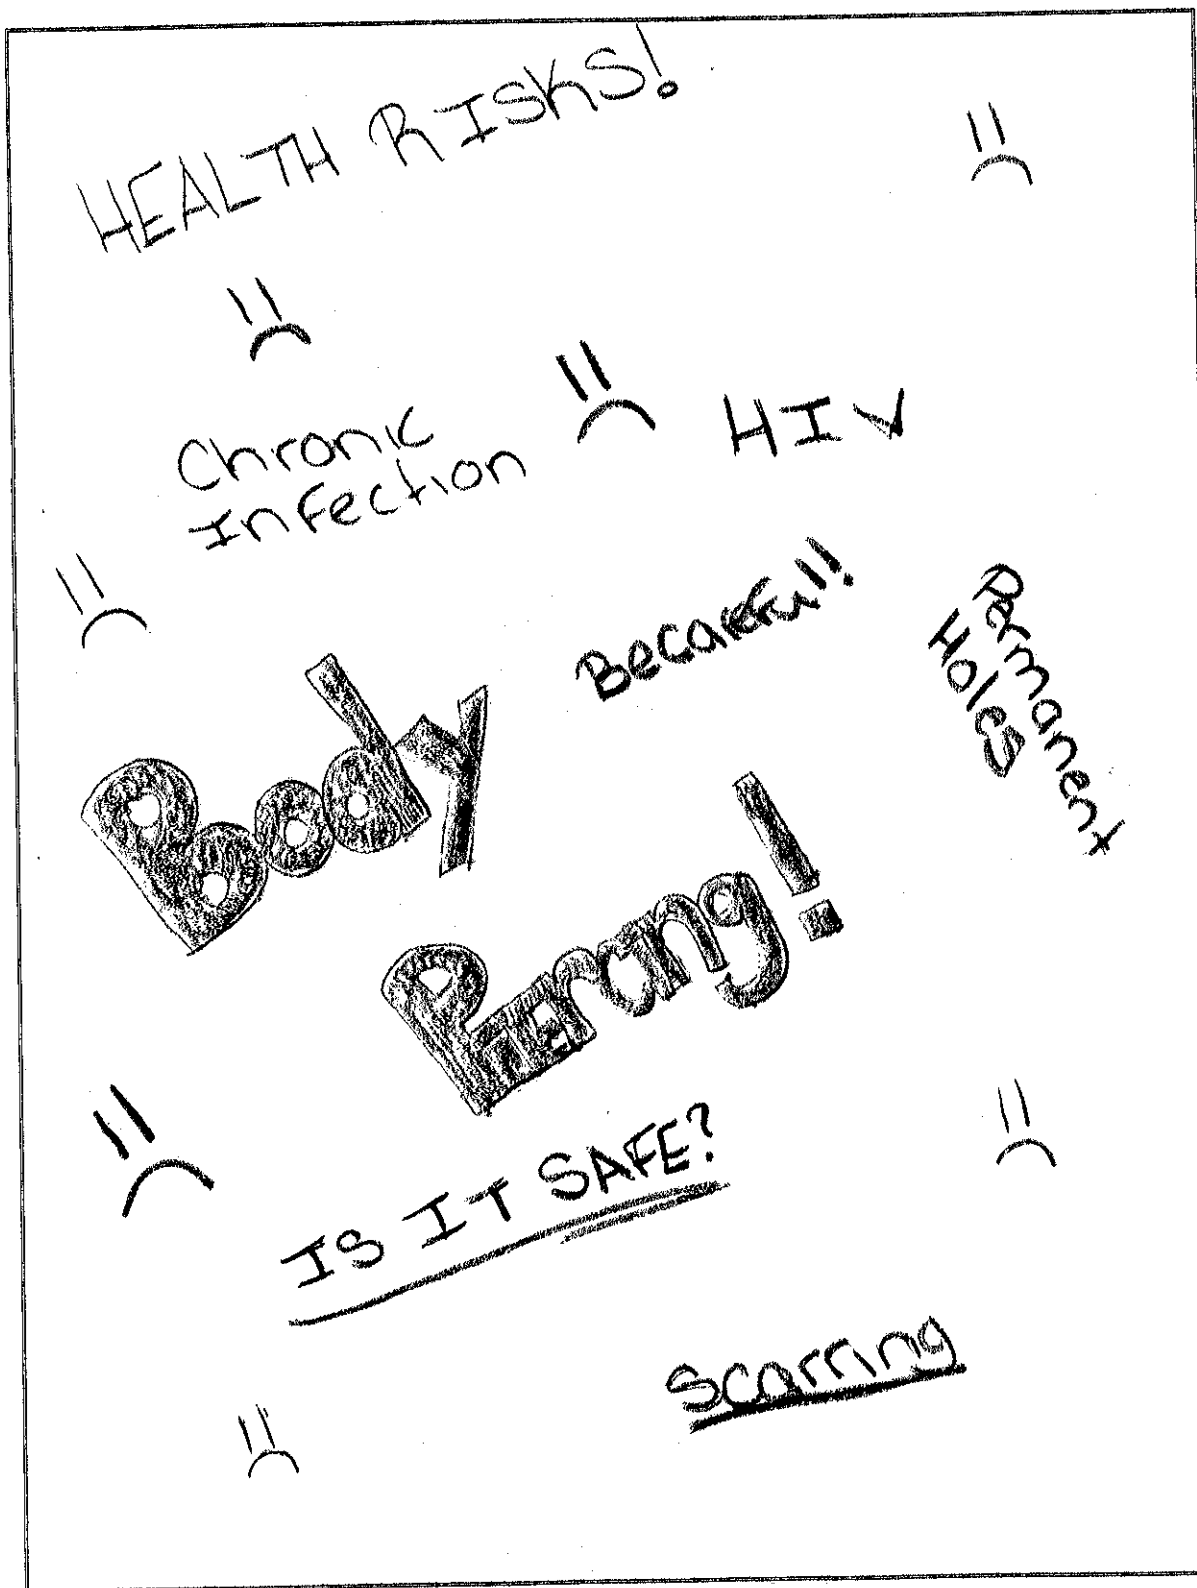 HEALTH RISKS!
Chronic
Infection
HIV
Becareful!!
Permanent
Holes
Body
Piercing!
IS IT SAFE?
Scarring